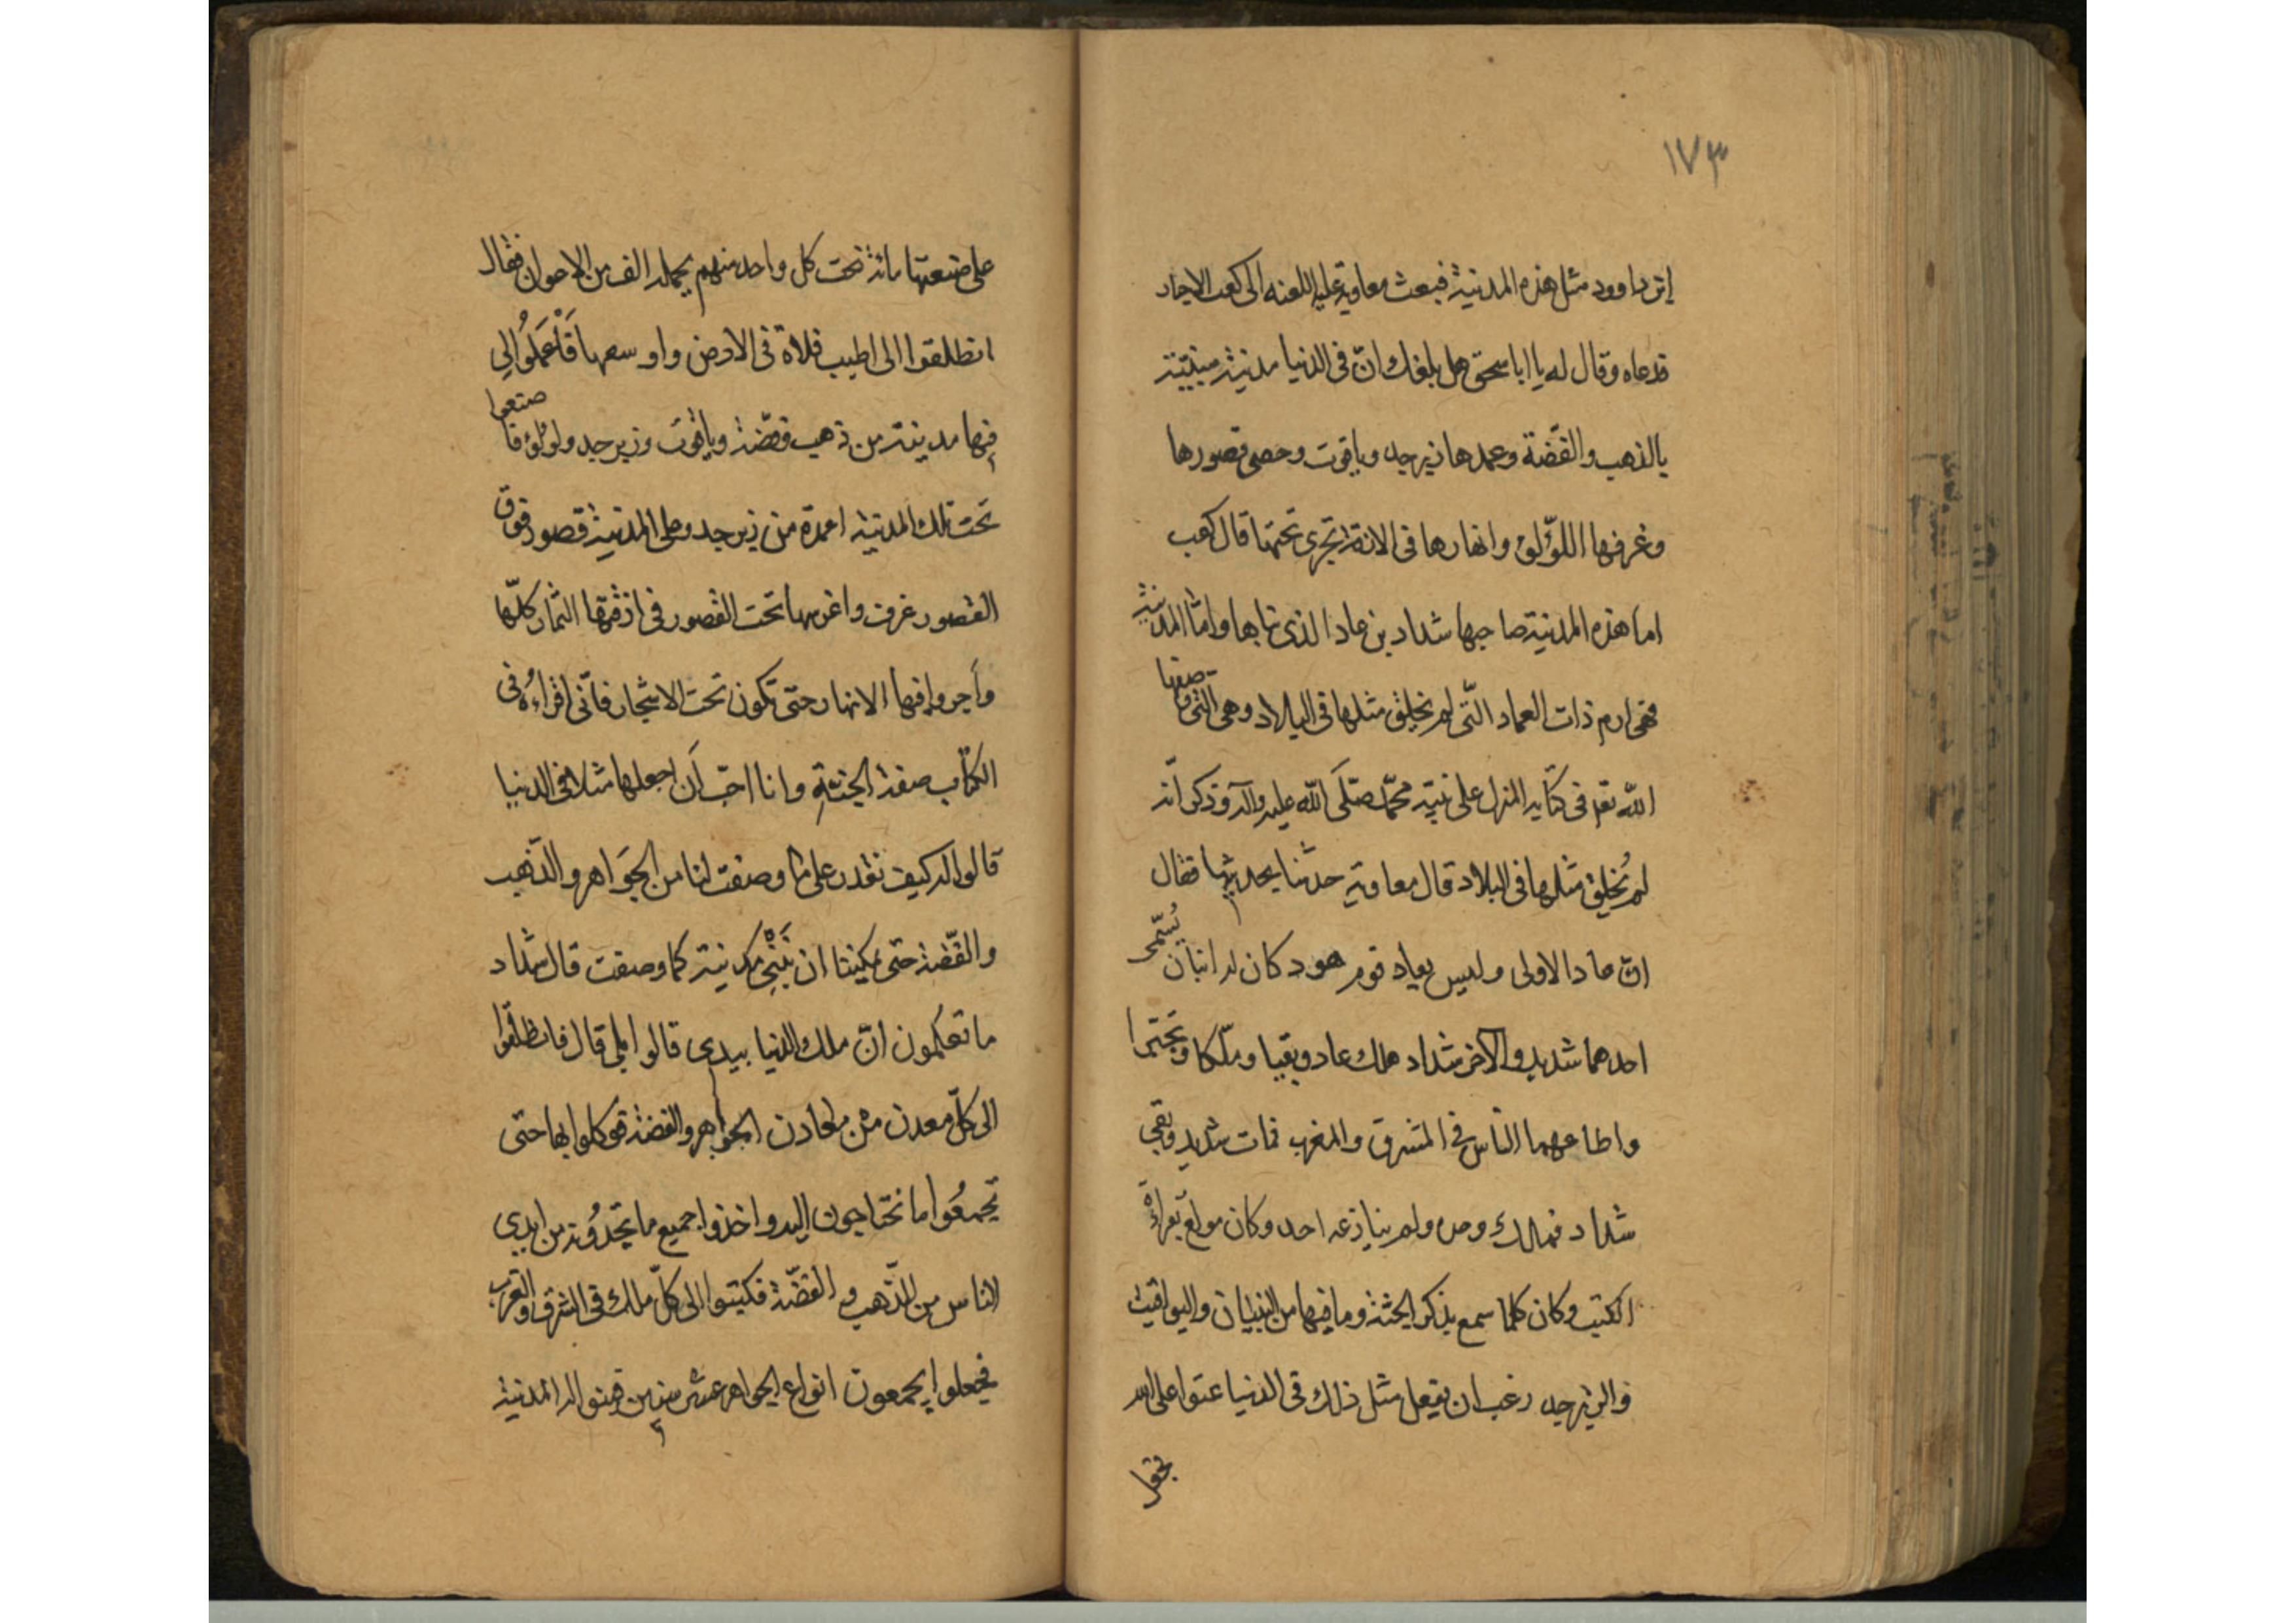 ١٧٣
ابن داوود مثل هذه المدنية فبعث معاوية عليه اللعنه الى كعب الاحبار
فدعاه وقال له يا ابا سحق هل بلغك انّ في الدنيا مدنية مبنيّة
بالذهب والفضّة وعمدها زبرجد وياقوت وحصى قصورها
وغرفها اللؤلؤ وانهارها في الازقة تجرى تحتها قال كعب
اما هذه المدنية صاحبها شداد بن عاد الذى بناها وامّا المدنية
فهى ارم ذات العماد الّتى لم يخلق مثلها في البلاد وهى الّتى وصفها
اللّه تعم في كتابه المنزل على نبيّه محمّد صلّى اللّه عليه وآله وذكر انّه
لم يُخلق مثلها في البلاد قال معاوية حدثنا بحديثها فقال
انّ عادا الاولى وليس بعاد قوم هود كان له ابنان يُسمّى
احدهما شديد والآخر شداد هلك عاد وبقيا وملّكا وتجبّرا
واطاعهما النّاس في المشرق والمغرب فمات شديد وبقي
شداد فملك وحده ولم ينازعه احد وكان مولع بقراءة
الكتب وكان كلما سمع بذكر الجنّة وما فيها من البنيان واليواقيت
والزبرجد رغب ان يفعل مثل ذلك في الدنيا عتوا على الله
فجعل
على صنعتها مائة تحت كل واحد منهم يحمله الف من الاعوان فقال
انطلقوا الى اطيب فلاة في الارض واوسعها فَاْعمَلُوا لي
فيها مدينة من ذهب وفضّة وياقوت وزبرجد ولولؤ فاصنعوا
تحت تلك المدنية اعمدة من زبرجد وعلى المدنية قصور فوق
القصور غرف واغرسها تحت القصور في ازقتها الثمار كلّها
وأجروا فيها الانهار حتّى تكون تحت الاشجار فانّى اقراءهُ في
الكتاب صفة الجنّة وانا احبّ أن اجعلها مثلا في الدنيا
قالوا له كيف نقدر على ما وصفت لنا من الجَواهر والذّهب
والفضّة حتى يمكينا ان نَبْنِي مدينة كما وصفت قال شداد
ما تعلمون انّ ملك الدنيا بيدى قالوا بلى قال فانطلقوا
الى كلّ معدن من معادن الجواهر والفضة فوكلوا بها حتى
تجمعُوا ما تحتاجون اليه واخذوا جميع ما تجدُونه من ايدي
الناس من الذّهب والفضّة فكتبوا الى كلّ ملك في الشرق والغرب
فجعلوا يجمعون انواع الجواهر عشر سنين فبنوا له المدنية